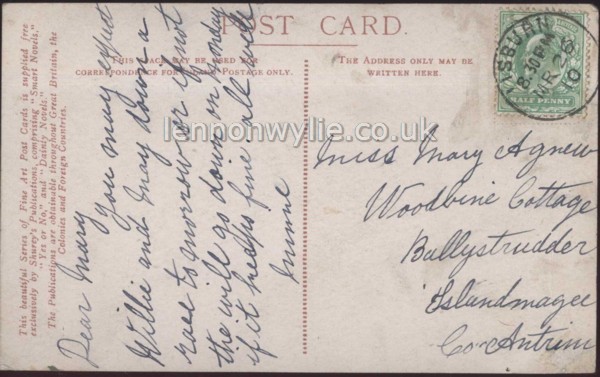 POST CARD.
THIS SPACE MAY BE USED FOR
CORRESPONDENCE FOR INLAND POSTAGE ONLY.
THE ADDRESS ONLY MAY BE
WRITTEN HERE.
This beautiful Series of Fine Art Post Cards is supplied free
exclusively by Shurey's Publications, comprising "Smart Novels,"
"Yes or No," and "Dainty Novels."
The Publications are obtainable throughout Great Britain, the
Colonies and Foreign Countries.
Dear Mary
You may expect
Willie and May down a
race to morrow or if not
the will go down on Monday
if it keeps fine. all well
Minnie
Miss Mary Agnew
Woodbine Cottage
Ballystrudder
Islandmagee
Co Antrim
LISBURN
8.30 PM
MR 26
10
HALF PENNY
lennonwylie.co.uk